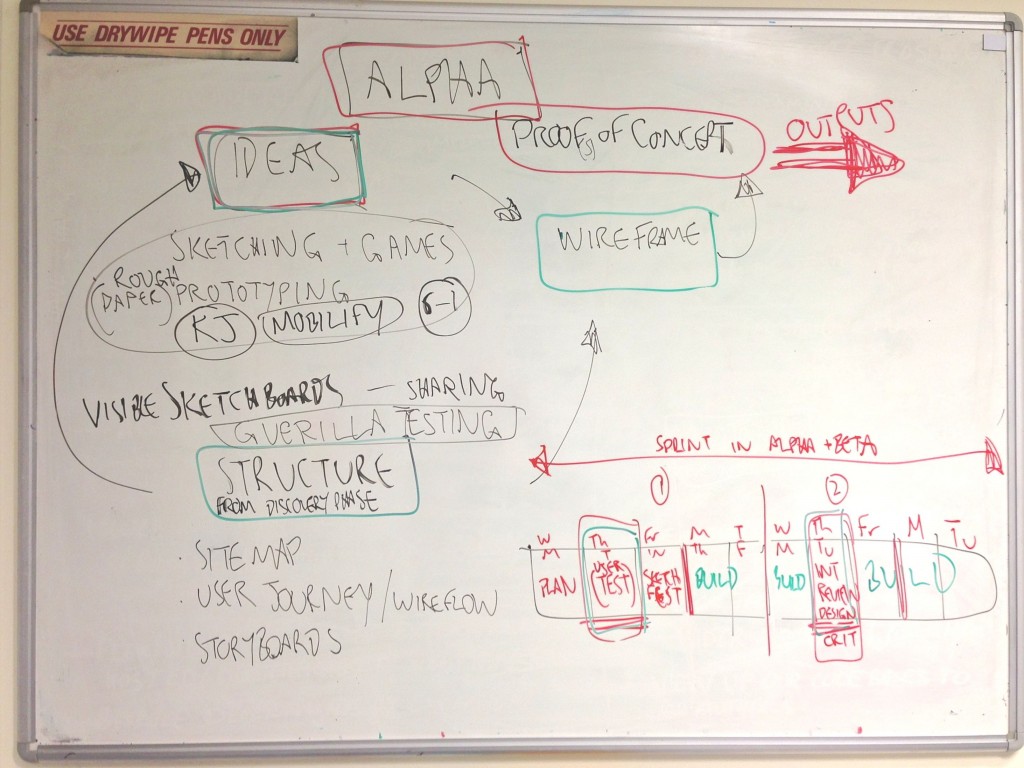 USE DRYWIPE PENS ONLY
ALPHA
PROOF OF CONCEPT
OUTPUTS
IDEAS
WIREFRAME
SKETCHING + GAMES
(ROUGH PAPER) PROTOTYPING
KJ MOBILIFY 6-1
VISIBLE SKETCHBOARDS — SHARING
GUERILLA TESTING
STRUCTURE
FROM DISCOVERY PHASE
· SITEMAP
· USER JOURNEY / WIREFLOW
· STORYBOARDS
SPRINT IN ALPHA + BETA
1 2
W Th Fr M T W Th Fr M Tu
M T W Th F M Tu
PLAN USER (TEST) SKETCH FEST BUILD BUILD INT REVIEW DESIGN CRIT BUILD